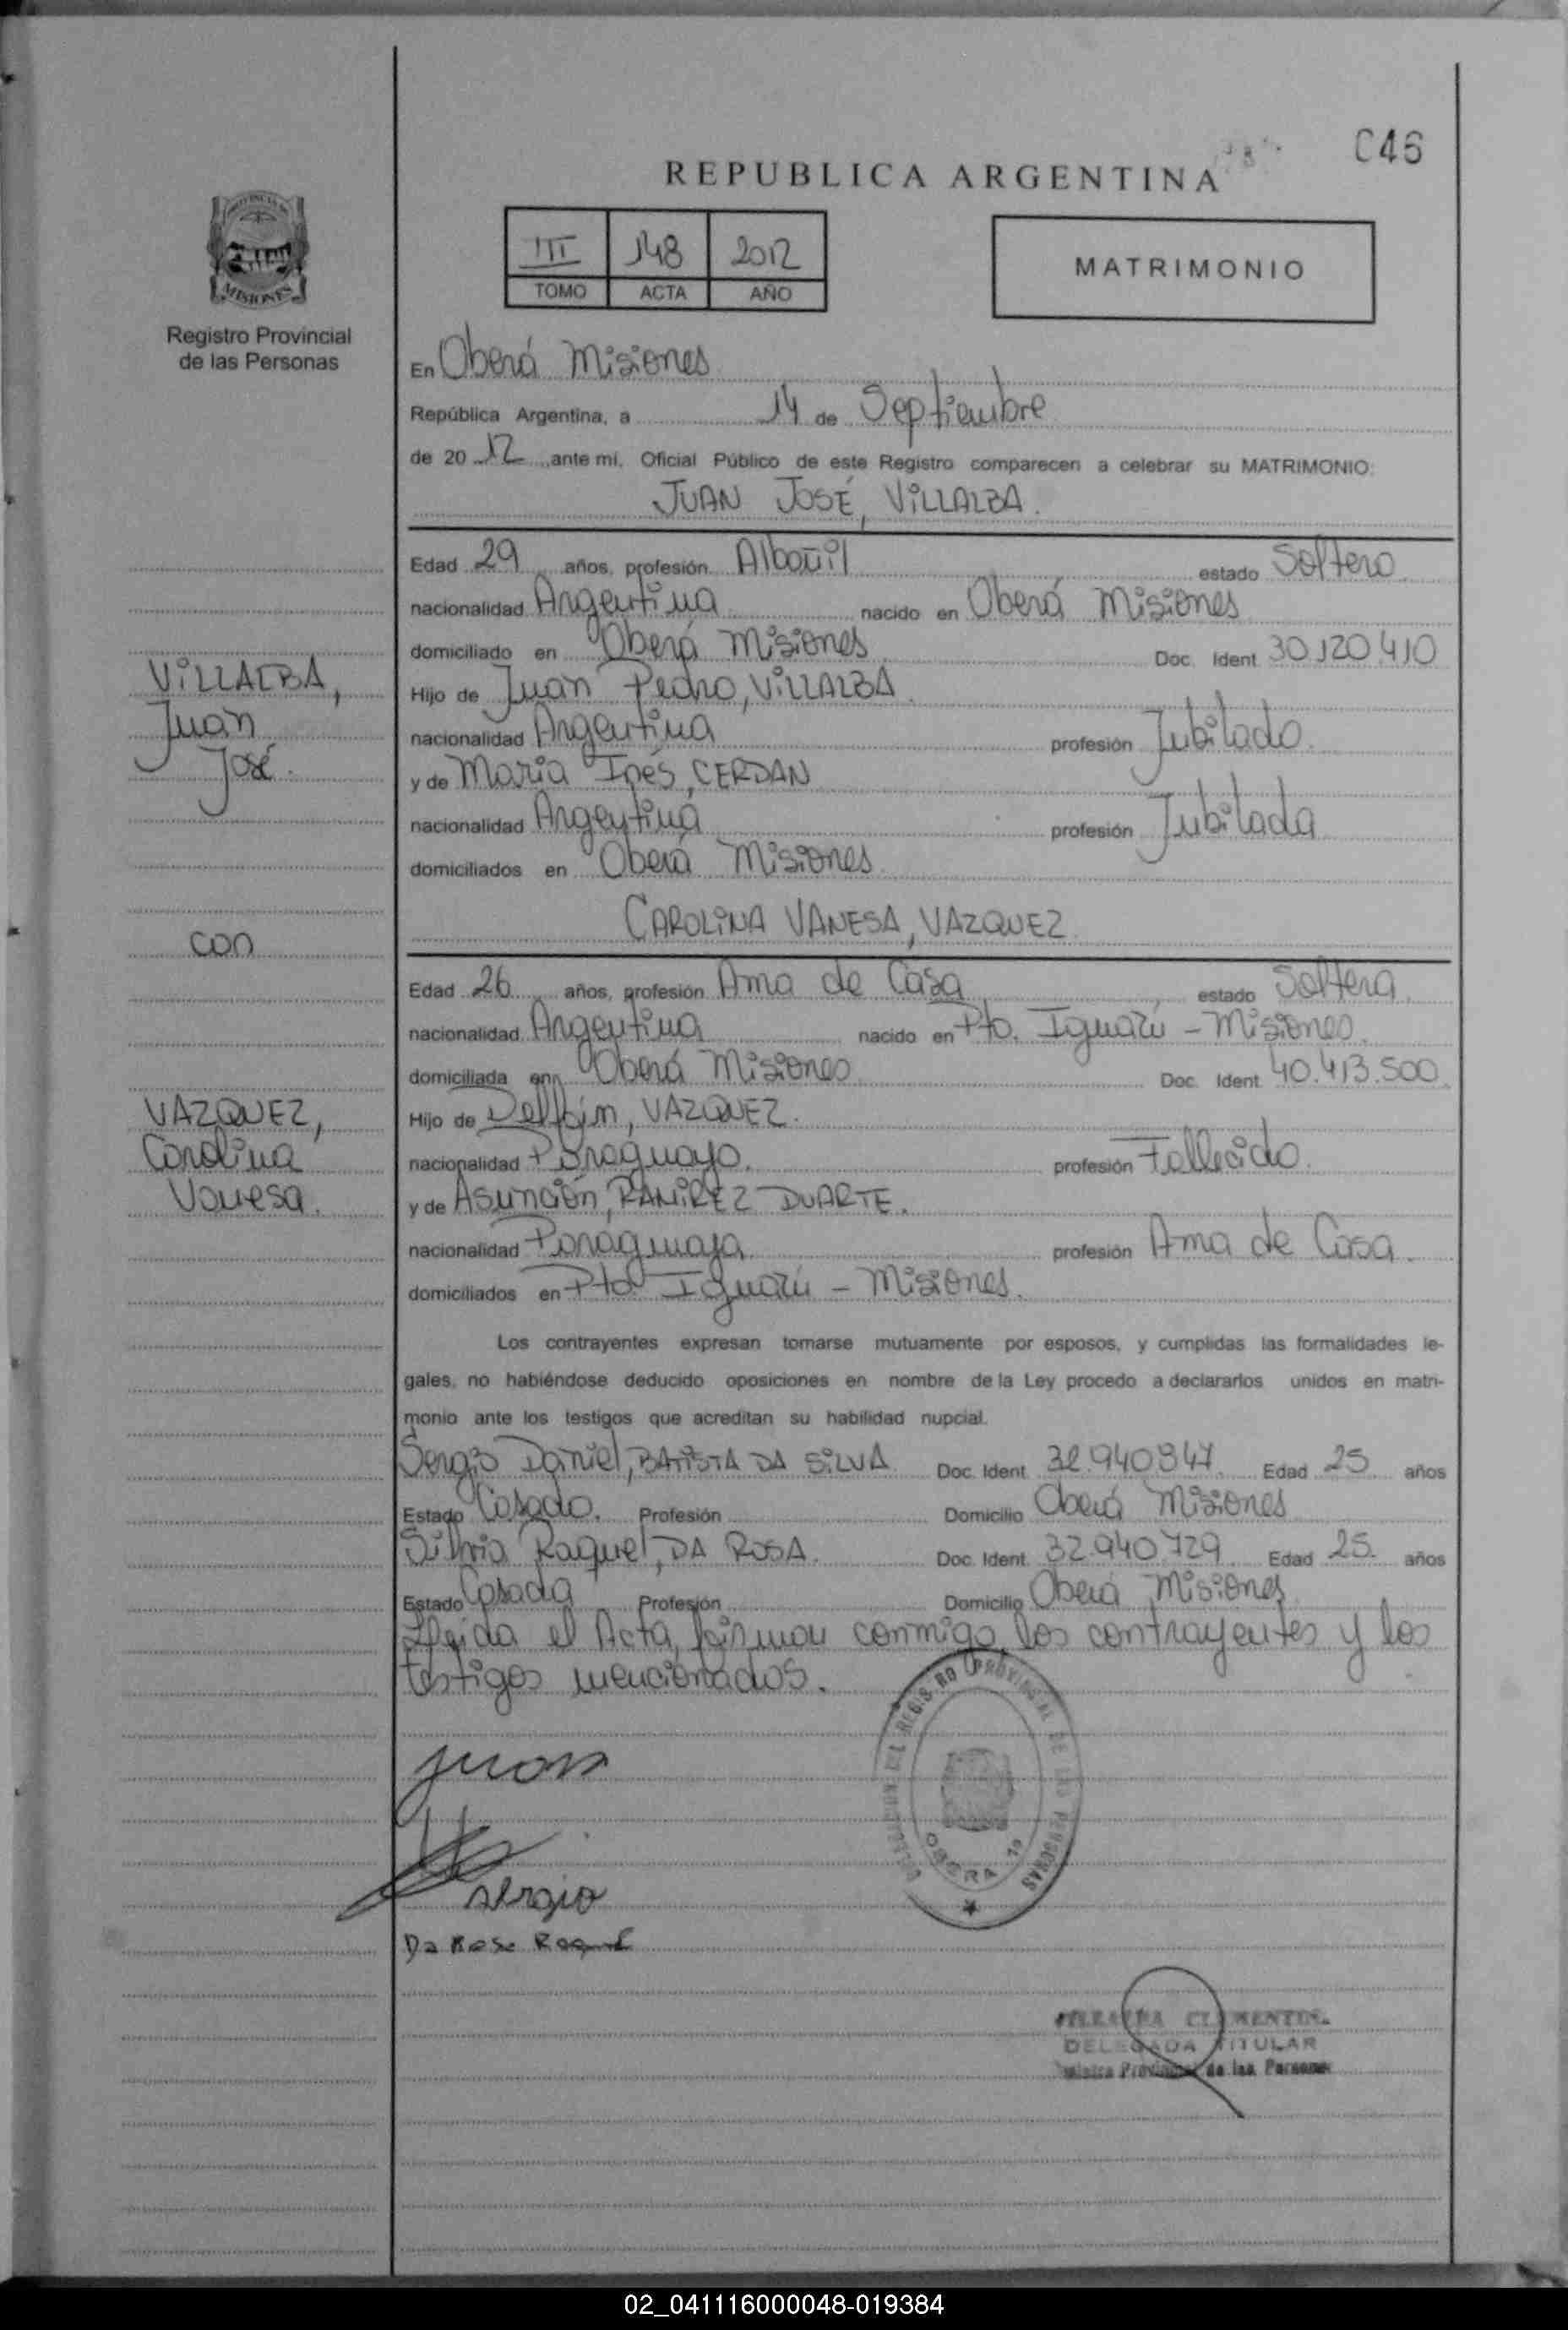 C46
REPUBLICA ARGENTINA
III 148 2012
TOMO ACTA AÑO
MATRIMONIO
MISIONES
Registro Provincial
de las Personas
En Oberá Misiones
República Argentina, a 14 de Septiembre
de 20 12 ante mí, Oficial Público de este Registro comparecen a celebrar su MATRIMONIO:
JUAN JOSÉ, VILLALBA.
Edad 29 años, profesión Albañil estado Soltero
nacionalidad Argentina nacido en Oberá Misiones
domiciliado en Oberá Misiones Doc. Ident 30.120.410
VILLALBA,
Juan
José.
Hijo de Juan Pedro, VILLALBA
nacionalidad Argentina profesión Jubilado
y de María Inés, CERDAN
nacionalidad Argentina profesión Jubilada
domiciliados en Oberá Misiones
CAROLINA VANESA, VAZQUEZ
con
Edad 26 años, profesión Ama de Casa estado Soltera
nacionalidad Argentina nacido en Pto. Iguazú - Misiones
domiciliada en Oberá Misiones Doc. Ident 40.413.500
VAZQUEZ,
Carolina
Vanesa.
Hijo de Delfín, VAZQUEZ.
nacionalidad Paraguayo. profesión Fallecido.
y de Asunción, RAMIREZ DUARTE.
nacionalidad Paraguaya profesión Ama de Casa.
domiciliados en Pto. Iguazú - Misiones.
Los contrayentes expresan tomarse mutuamente por esposos, y cumplidas las formalidades le-
gales, no habiéndose deducido oposiciones en nombre de la Ley procedo a declararlos unidos en matri-
monio ante los testigos que acreditan su habilidad nupcial.
Sergio Daniel, BATISTA DA SILVA Doc. Ident 32.940.847 Edad 25 años
Estado Casado. Profesión Domicilio Oberá Misiones
Silvia Raquel, DA ROSA. Doc. Ident. 32.940.729 Edad 25 años
Estado Casada Profesión Domicilio Oberá Misiones
Leída el Acta, firman conmigo los contrayentes y los
testigos mencionados.
REGISTRO PROVINCIAL DE LAS PERSONAS
OBERA
juan
sergio
Da Rosa Raquel
DELEGADA TITULAR
Provincial de las Personas
02_041116000048-019384